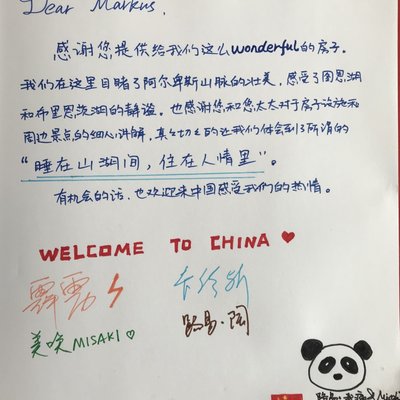 Dear Markus,
感谢您提供给我们这么wonderful的房子.
我们在这里目睹了阿尔卑斯山脉的壮美，感受了图恩湖
和布里恩茨湖的静谧。也感谢您和您太太对于房子设施和
周边景点的细心讲解，真真切切的让我们体会到了所谓的
“睡在山湖间，住在人情里”。
有机会的话，也欢迎来中国感受我们的热情。
WELCOME TO CHINA ♥
霹雳
美咲 MISAKI ♡
路易·陶